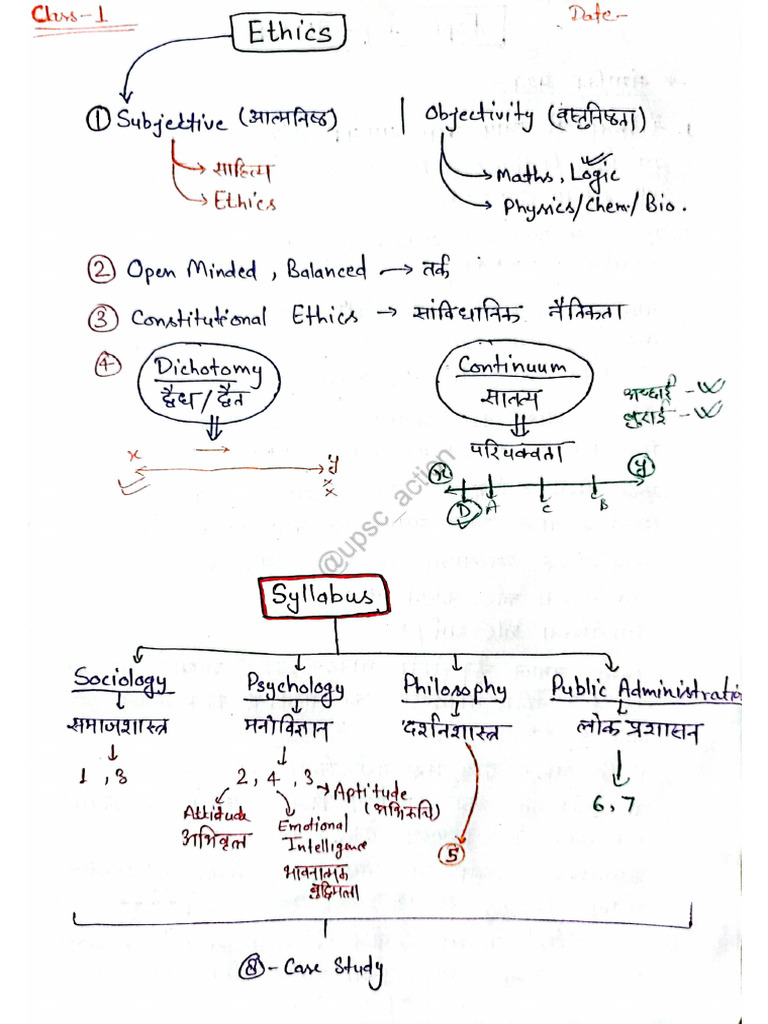 Class-1
Date-
Ethics
① Subjective (आत्मनिष्ठ) | Objectivity (वस्तुनिष्ठता)
→ साहित्य
→ Ethics
→ Maths, Logic
→ Physics/Chem/Bio.
② Open Minded, Balanced → तर्क
③ Constitutional Ethics → सांविधानिक नैतिकता
④ Dichotomy
द्वैध/द्वैत
Continuum
सातत्य
अच्छाई -
बुराई -
परिपक्वता
x y
x
x y
D A C B
@upsc_action
Syllabus
Sociology Psychology Philosophy Public Administratio
समाजशास्त्र मनोविज्ञान दर्शनशास्त्र लोक प्रशासन
1, 3
2, 4, 3 → Aptitude
(अभिरुचि)
6, 7
Attitude
अभिवृत्त
Emotional
Intelligence
भावनात्मक
बुद्धिमता
5
⑧ - Case Study